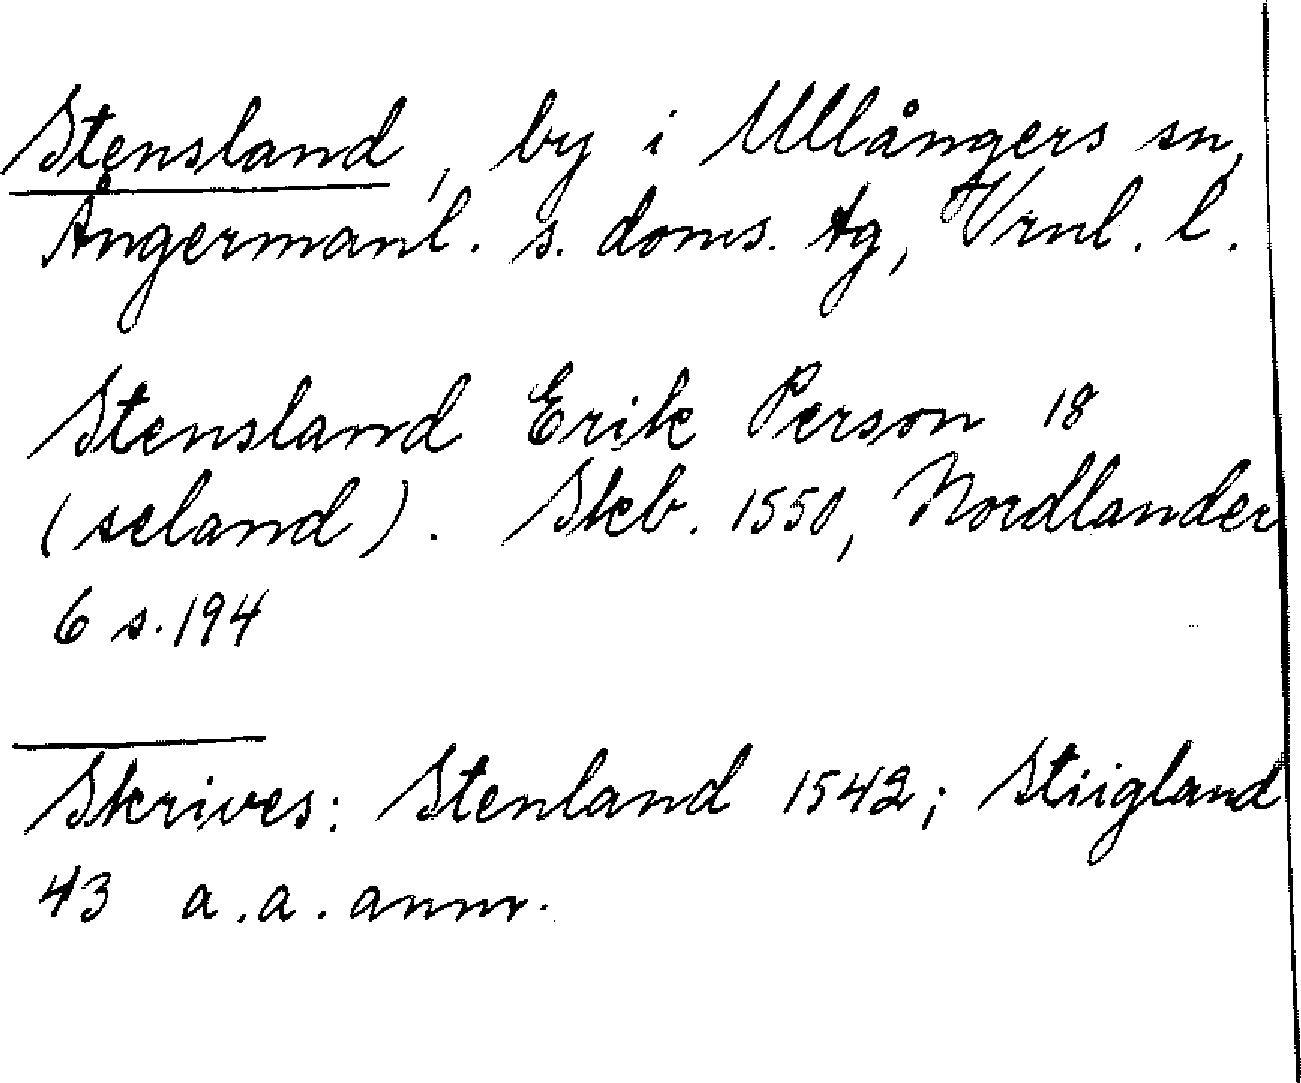 Stensland, by i Ullångers sn,
Ångermanl. s. doms. tg, Vrnl. l.
Stensland Erik Person 18
(seland). Skb. 1550, Nordlander
6 s. 194
Skrives: Stenland 1542; Stiigland
43 a.a. anm.